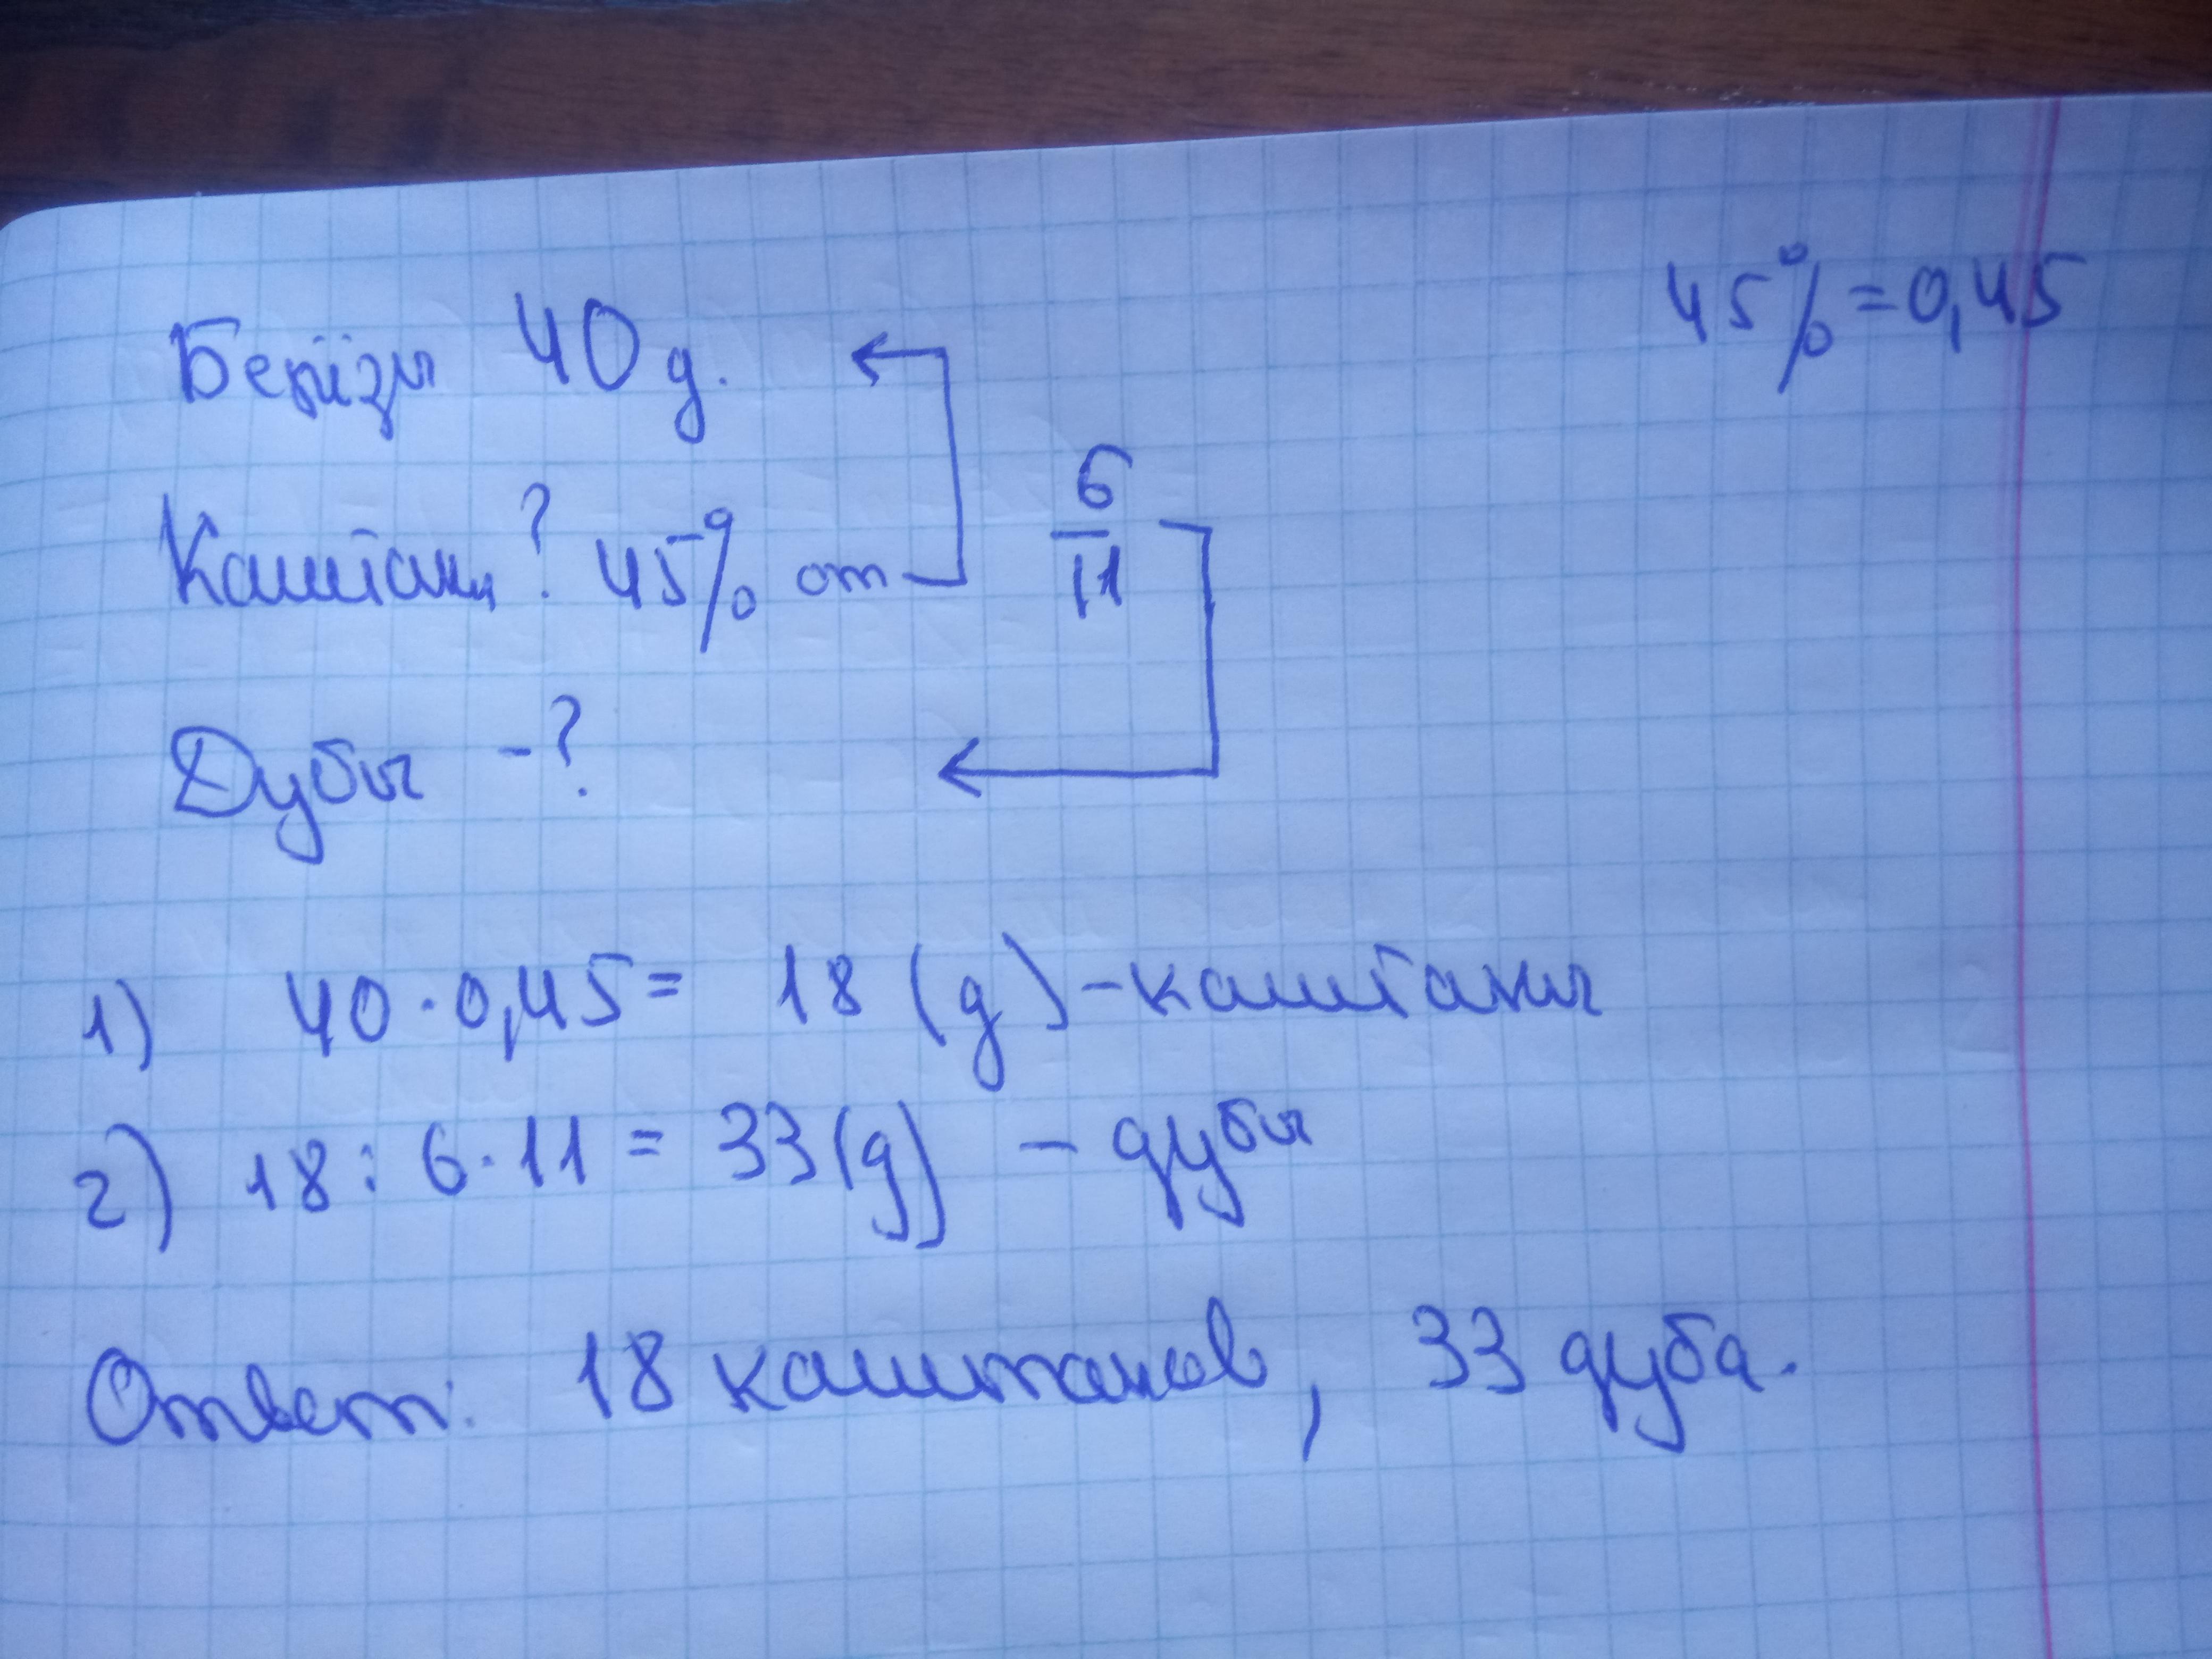 45% = 0,45
Берёзы 40 д.
Каштаны ? 45% от 6/11
Дубы - ?
1) 40 · 0,45 = 18 (д) - каштаны
2) 18 : 6 · 11 = 33 (д) - дубы
Ответ: 18 каштанов, 33 дуба.